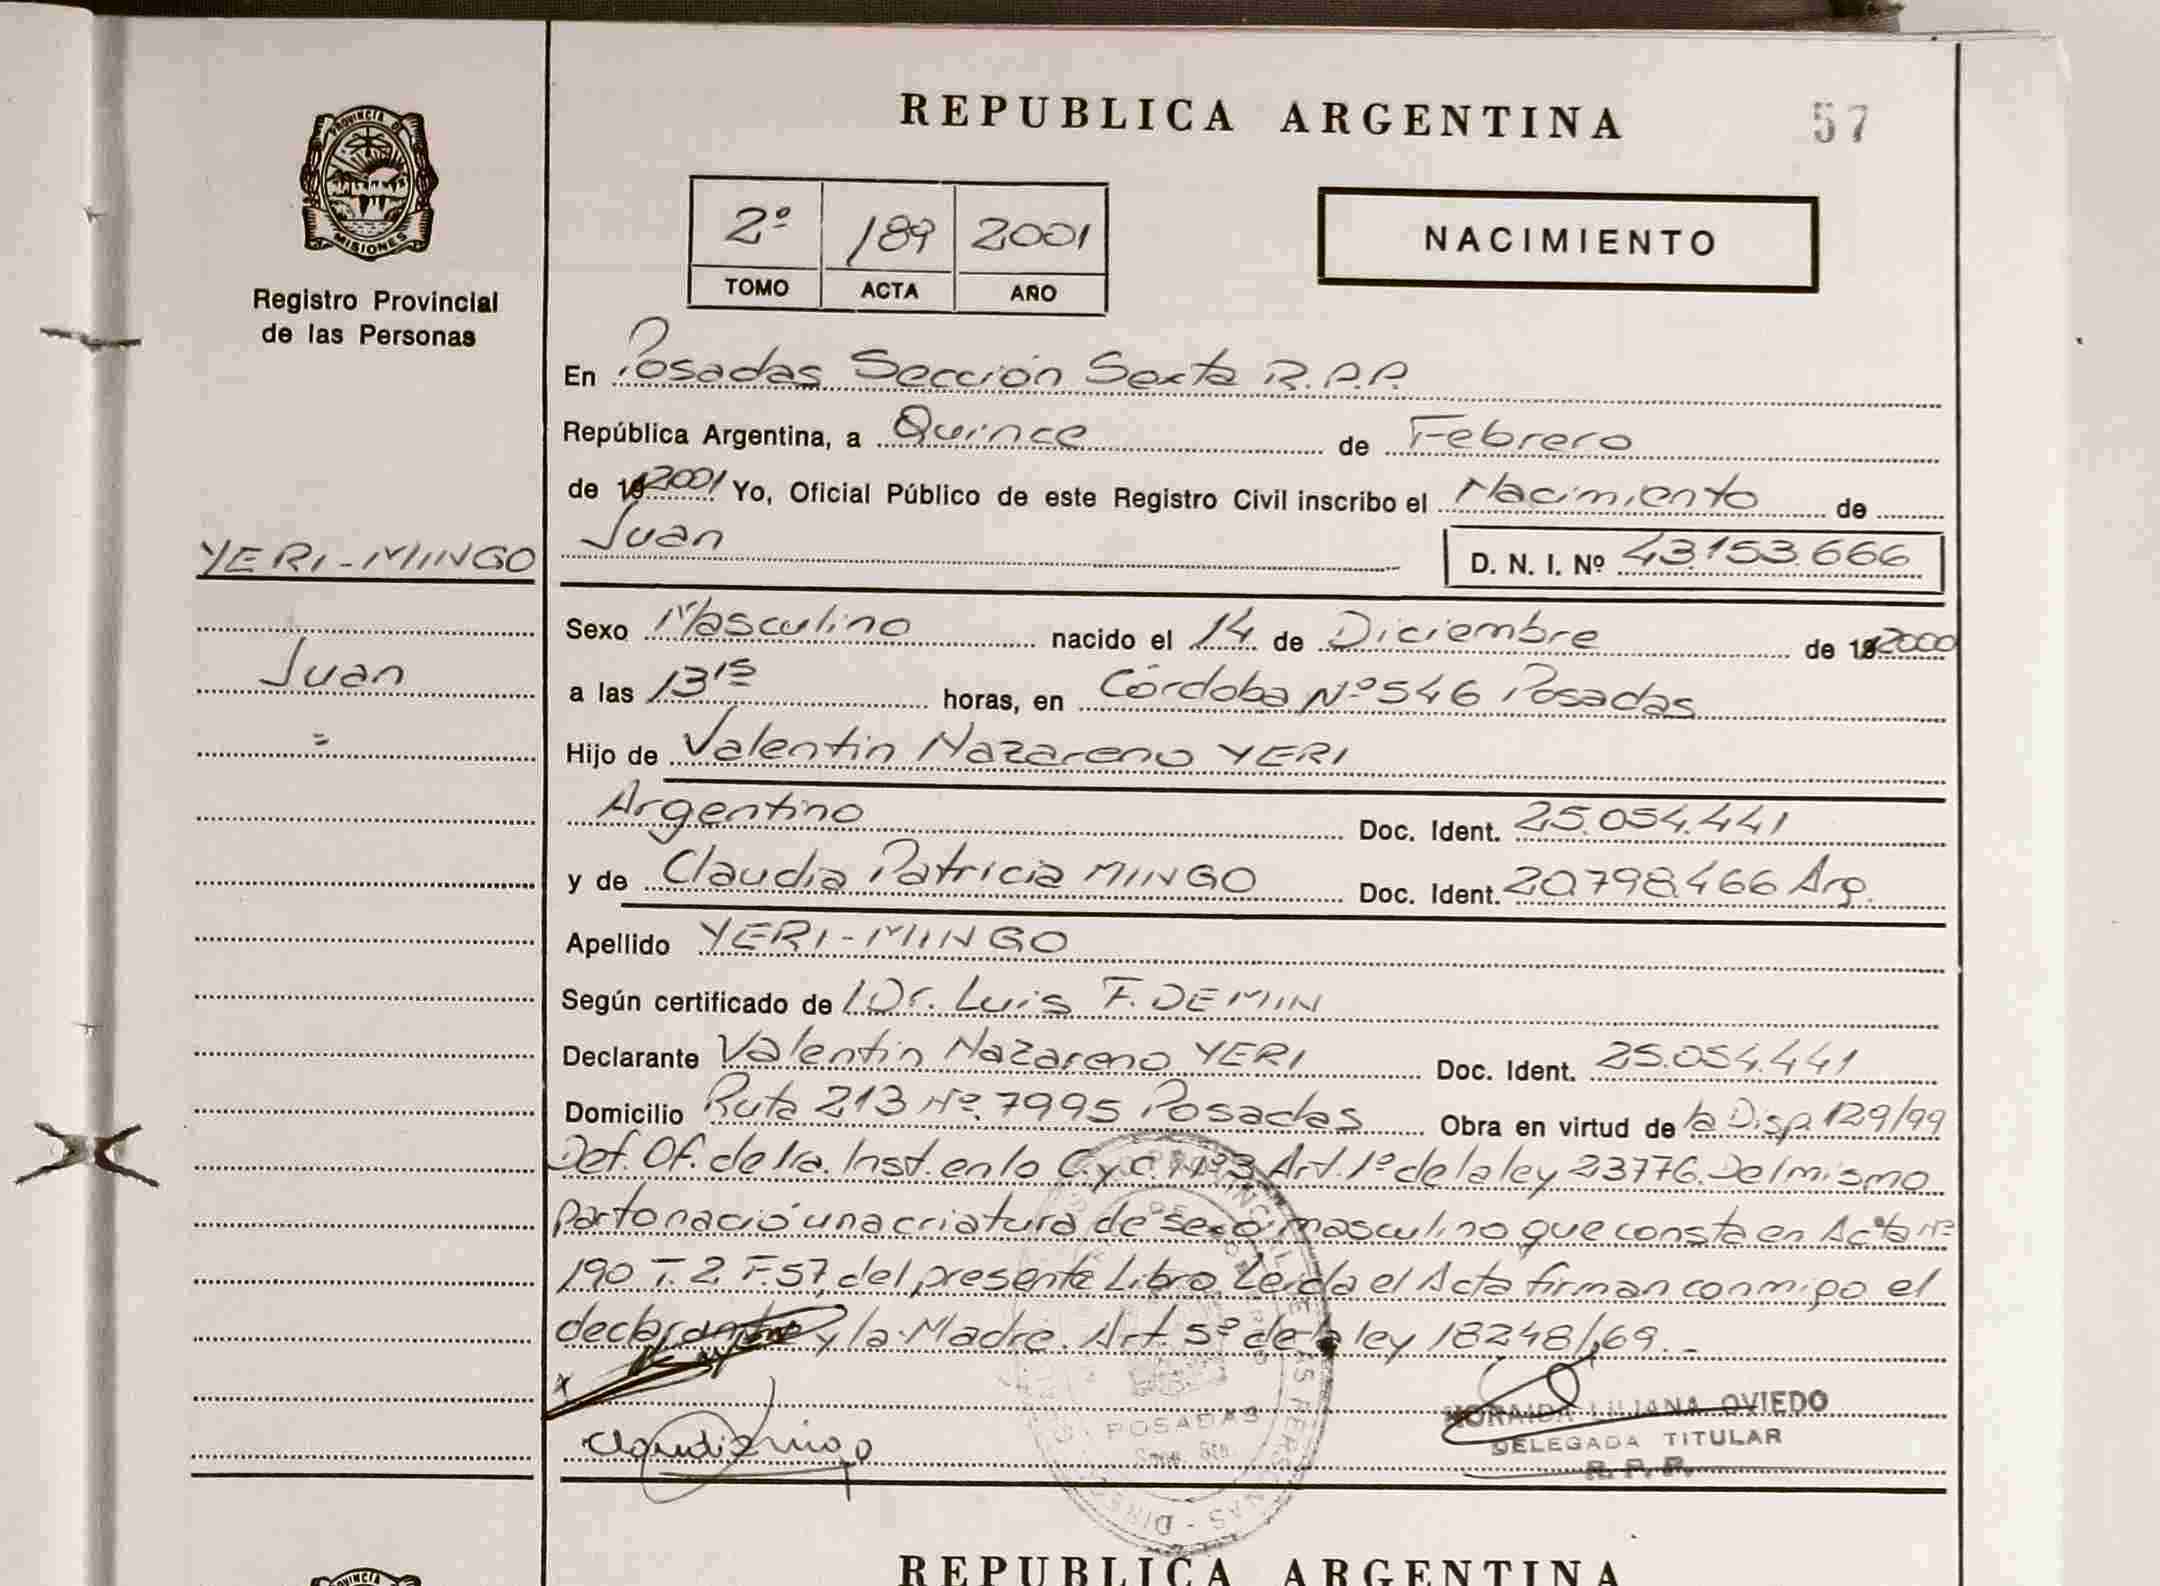 REPUBLICA ARGENTINA
57
PROVINCIA DE
MISIONES
Registro Provincial
de las Personas
2º 189 2001
TOMO ACTA AÑO
NACIMIENTO
En Posadas Sección Sexta R.P.P.
República Argentina, a Quince de Febrero
de 192001 Yo, Oficial Público de este Registro Civil inscribo el Nacimiento de
Juan D. N. I. Nº 43.153.666
YERI-MINGO
Juan
=
Sexo Masculino nacido el 14 de Diciembre de 192000
a las 13 15 horas, en Córdoba Nº 546 Posadas
Hijo de Valentin Nazareno YERI
Argentino Doc. Ident. 25.054.441
y de Claudia Patricia MINGO Doc. Ident. 20.798.466 Arg.
Apellido YERI-MINGO
Según certificado de Dr. Luis F. DEMIN
Declarante Valentin Nazareno YERI Doc. Ident. 25.054.441
Domicilio Ruta 213 Nº 7995 Posadas Obra en virtud de la Disp. 129/99
Def. Of. de 1ra. Inst. en lo C. y C. Nº 3 Art. 1º de la ley 23776. Del mismo
parto nació una criatura de sexo masculino que consta en Acta Nº
190 T. 2 F. 57, del presente Libro. Leída el Acta firman conmigo el
declarante y la Madre. Art. 5º de la ley 18248/69.-
x
Claudia Mingo
POSADAS
NORAIDA LILIANA OVIEDO
DELEGADA TITULAR
R. P. P.
REPUBLICA ARGENTINA
PROVINCIA